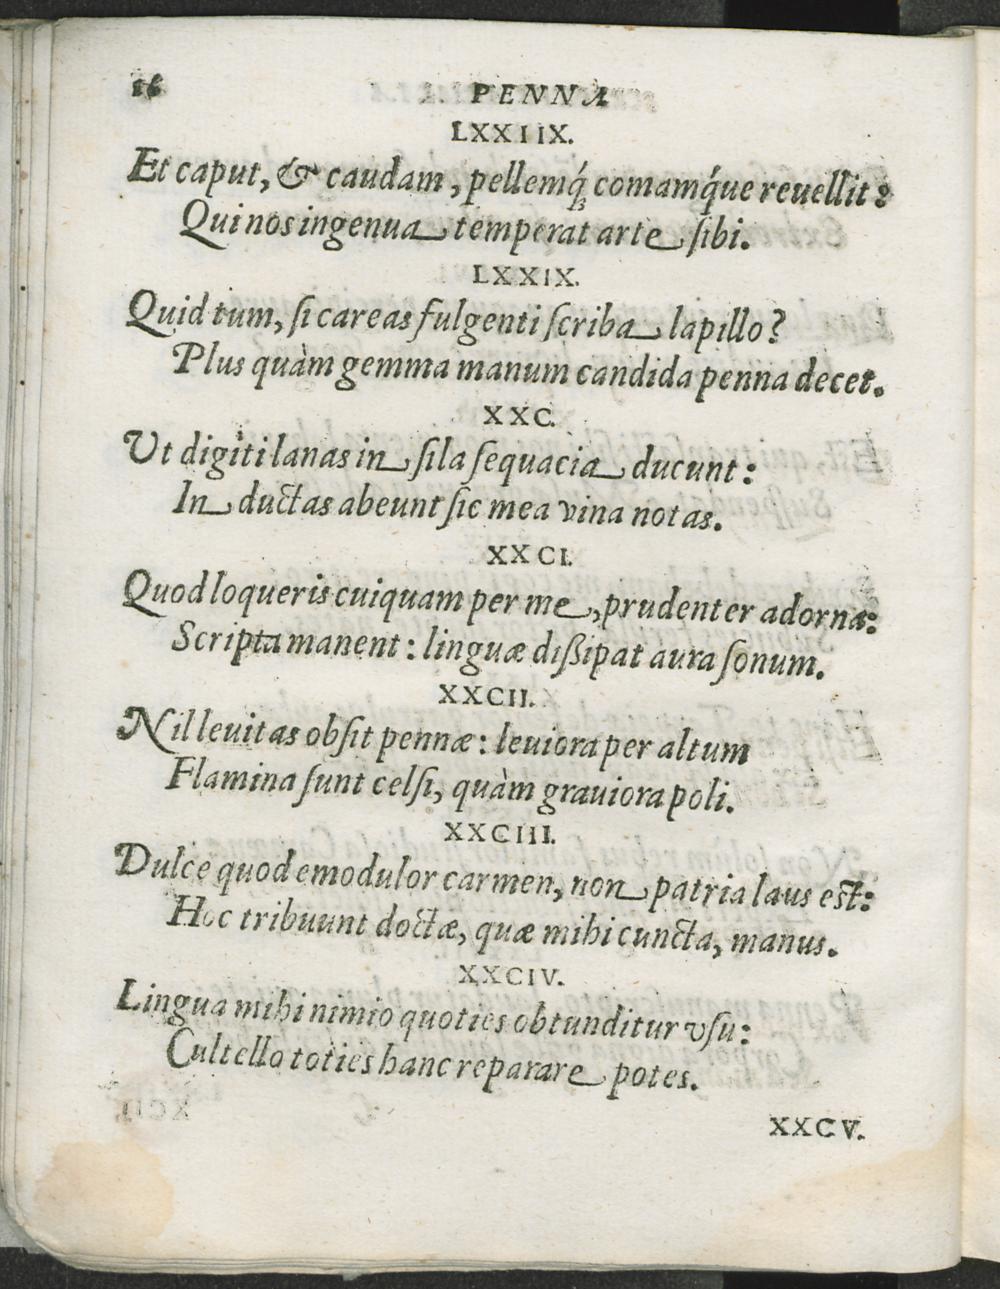 16
PENNA
LXXIIX.
Et caput, & caudam, pellemq́ comamq́ue reuellit:
Qui nos ingenua temperat arte sibi.
LXXIX.
Quid tum, si careas fulgenti scriba lapillo?
Plus quàm gemma manum candida penna decet.
XXC.
Ut digiti lanas in fila sequacia ducunt:
In ductas abeunt sic mea vina notas.
XXCI.
Quod loqueris cuiquam per me, prudenter adorna:
Scripta manent: linguæ dißipat aura sonum.
XXCII.
Nil leuitas obsit pennæ: leuiora per altum
Flamina sunt celsi, quàm grauiora poli.
XXCIII.
Dulce quod emodulor carmen, non patria laus est:
Hoc tribuunt doctæ, quæ mihi cuncta, manus.
XXCIV.
Lingua mihi nimio quoties obtunditur vsu:
Cultello toties hanc reparare potes.
XXCV.